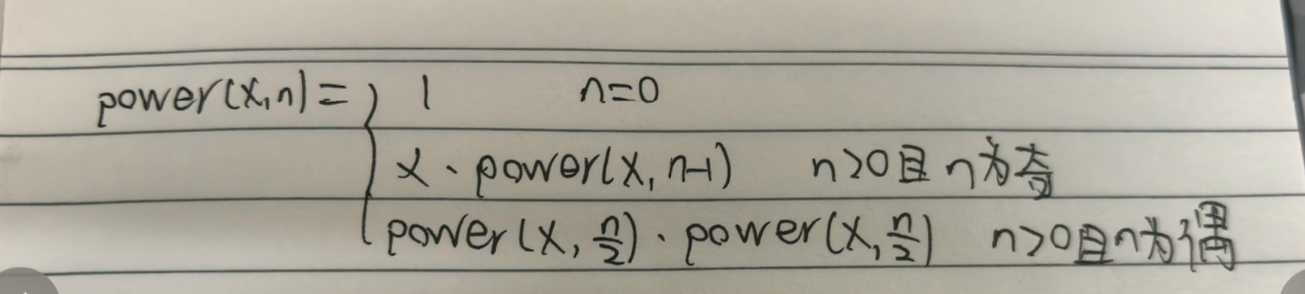 power(x,n)= { 1 n=0
x · power(x, n-1) n>0且n为奇
power(x, n/2) · power(x, n/2) n>0且n为偶